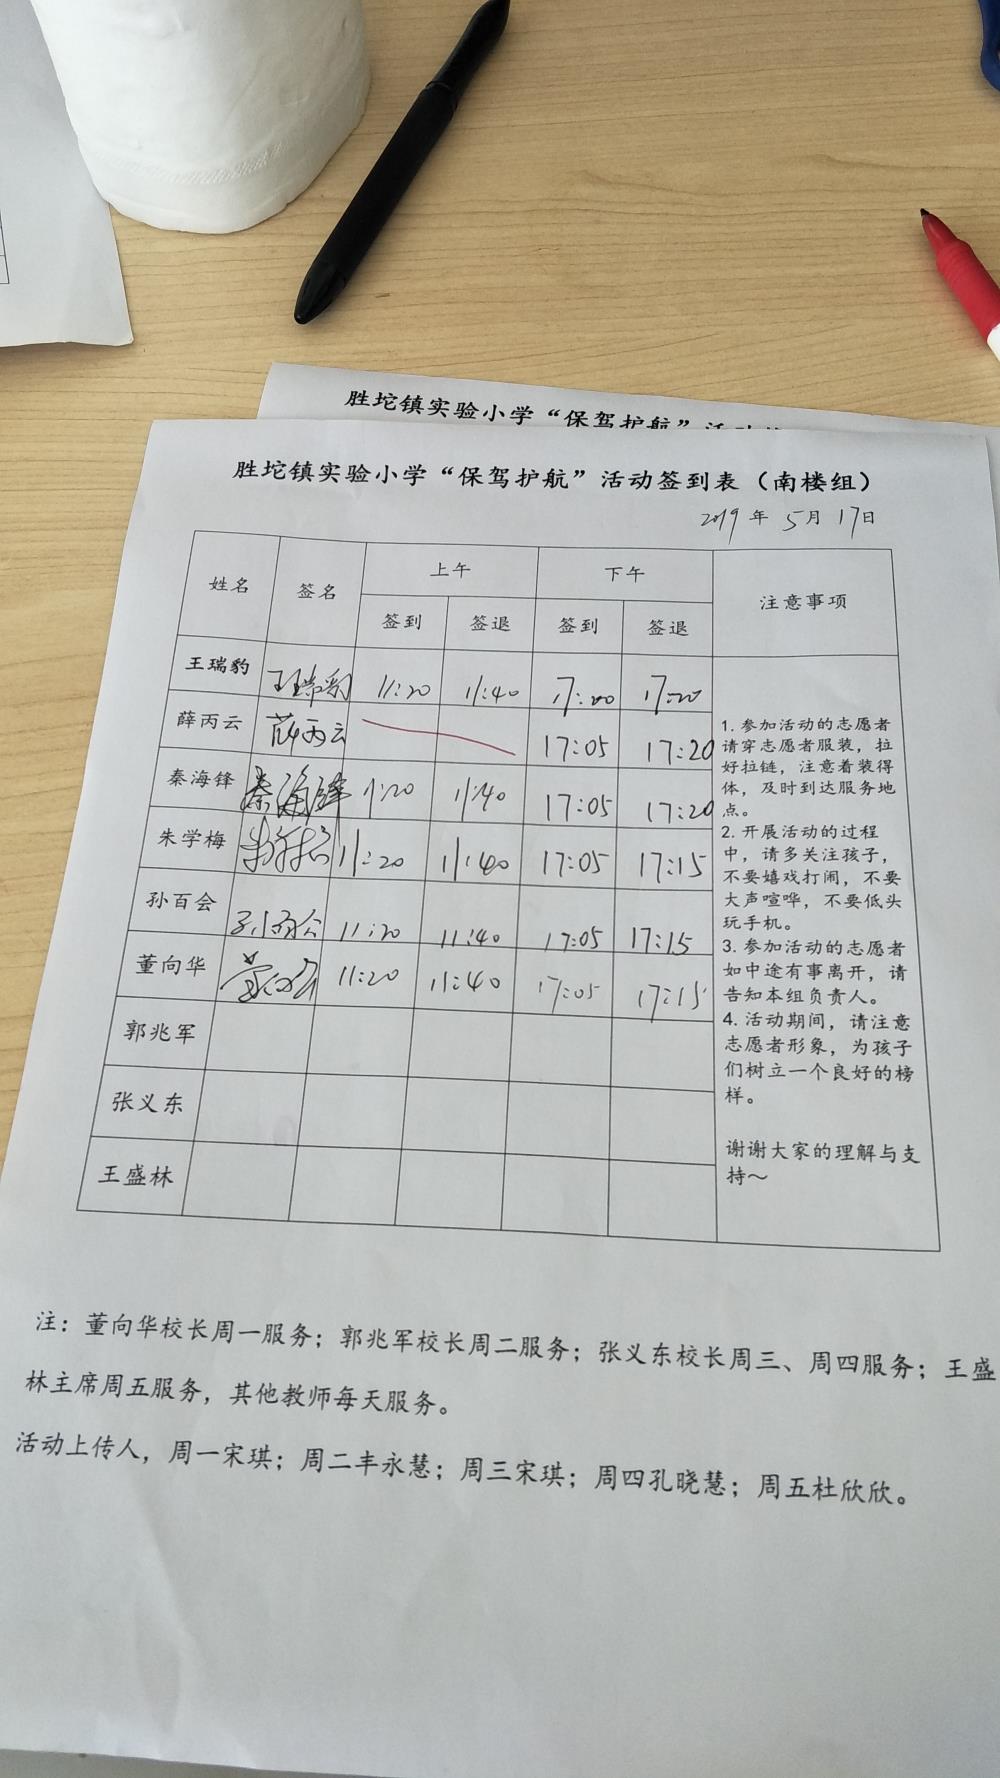 胜坨镇实验小学“保驾护航”活动
胜坨镇实验小学“保驾护航”活动签到表（南楼组）
2019 年 5 月 17 日
姓名 签名 上午 下午 注意事项
签到 签退 签到 签退
王瑞豹 王瑞豹 11:20 11:40 17:00 17:20
薛丙云 薛丙云 17:05 17:20
秦海锋 秦海锋 11:20 11:40 17:05 17:20
朱学梅 11:20 11:40 17:05 17:15
孙百会 孙百会 11:20 11:40 17:05 17:15
董向华 董向华 11:20 11:40 17:05 17:15
郭兆军
张义东
王盛林
1. 参加活动的志愿者
请穿志愿者服装，拉
好拉链，注意着装得
体，及时到达服务地
点。
2. 开展活动的过程
中，请多关注孩子，
不要嬉戏打闹，不要
大声喧哗，不要低头
玩手机。
3. 参加活动的志愿者
如中途有事离开，请
告知本组负责人。
4. 活动期间，请注意
志愿者形象，为孩子
们树立一个良好的榜
样。
谢谢大家的理解与支
持～
注：董向华校长周一服务；郭兆军校长周二服务；张义东校长周三、周四服务；王盛
林主席周五服务，其他教师每天服务。
活动上传人，周一宋琪；周二丰永慧；周三宋琪；周四孔晓慧；周五杜欣欣。